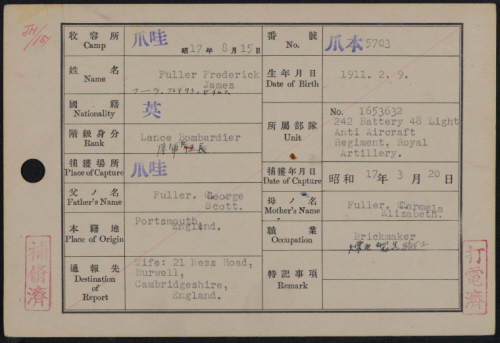 収容所 Camp 爪哇 昭17年8月15日
番號 No. 爪本5703
姓名 Name Fuller Frederick
James
生年月日 Date of Birth 1911. 2. 9.
國籍 Nationality 英
階級身分 Rank Lance Bombardier
所屬部隊 Unit No. 1653632
242 Battery 48 Light
Anti Aircraft
Regiment, Royal
Artillery.
捕獲場所 Place of Capture 爪哇
捕獲年月日 Date of Capture 昭和 17年3月20日
父ノ名 Father's Name Fuller. George
Scott.
母ノ名 Mother's Name Fuller. Carmela
Elizabeth.
本籍地 Place of Origin Portsmouth,
England.
職業 Occupation Brickmaker
通報先 Destination of Report Wife: 21 Ness Road,
Burwell,
Cambridgeshire,
England.
特記事項 Remark
補修濟
打電濟